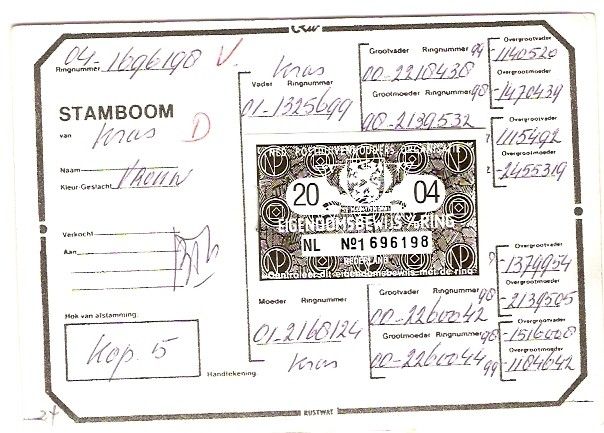 04-1696198 V.
Ringnummer
STAMBOOM
van Kras D
Naam
Kleur-Geslacht
Verkocht
Aan
Hok van afstamming:
Kop. 15
Handtekening.
24
Kras
Vader Ringnummer
01-1325699
NED. POSTDUIVENHOUDERS ORGANISATIE
20 04
EIGENDOMSBEWIJS v. RING
NL Nº1696198
NEDERLAND
Controleer dit eigendomsbewijs met de ring
Moeder Ringnummer
01-2168124
Kras
Grootvader Ringnummer 99
00-2218438
Grootmoeder Ringnummer 98
00-2139532
Grootvader Ringnummer 98
00-2260042
Grootmoeder Ringnummer 98
00-2260044 99
Overgrootvader
-1140520
Overgrootmoeder
-1470439
Overgrootvader
-1115492
Overgrootmoeder
-2455319
Overgrootvader
-1379954
Overgrootmoeder
-2139505
Overgrootvader
-1516008
Overgrootmoeder
-1184642
RUSTWAT